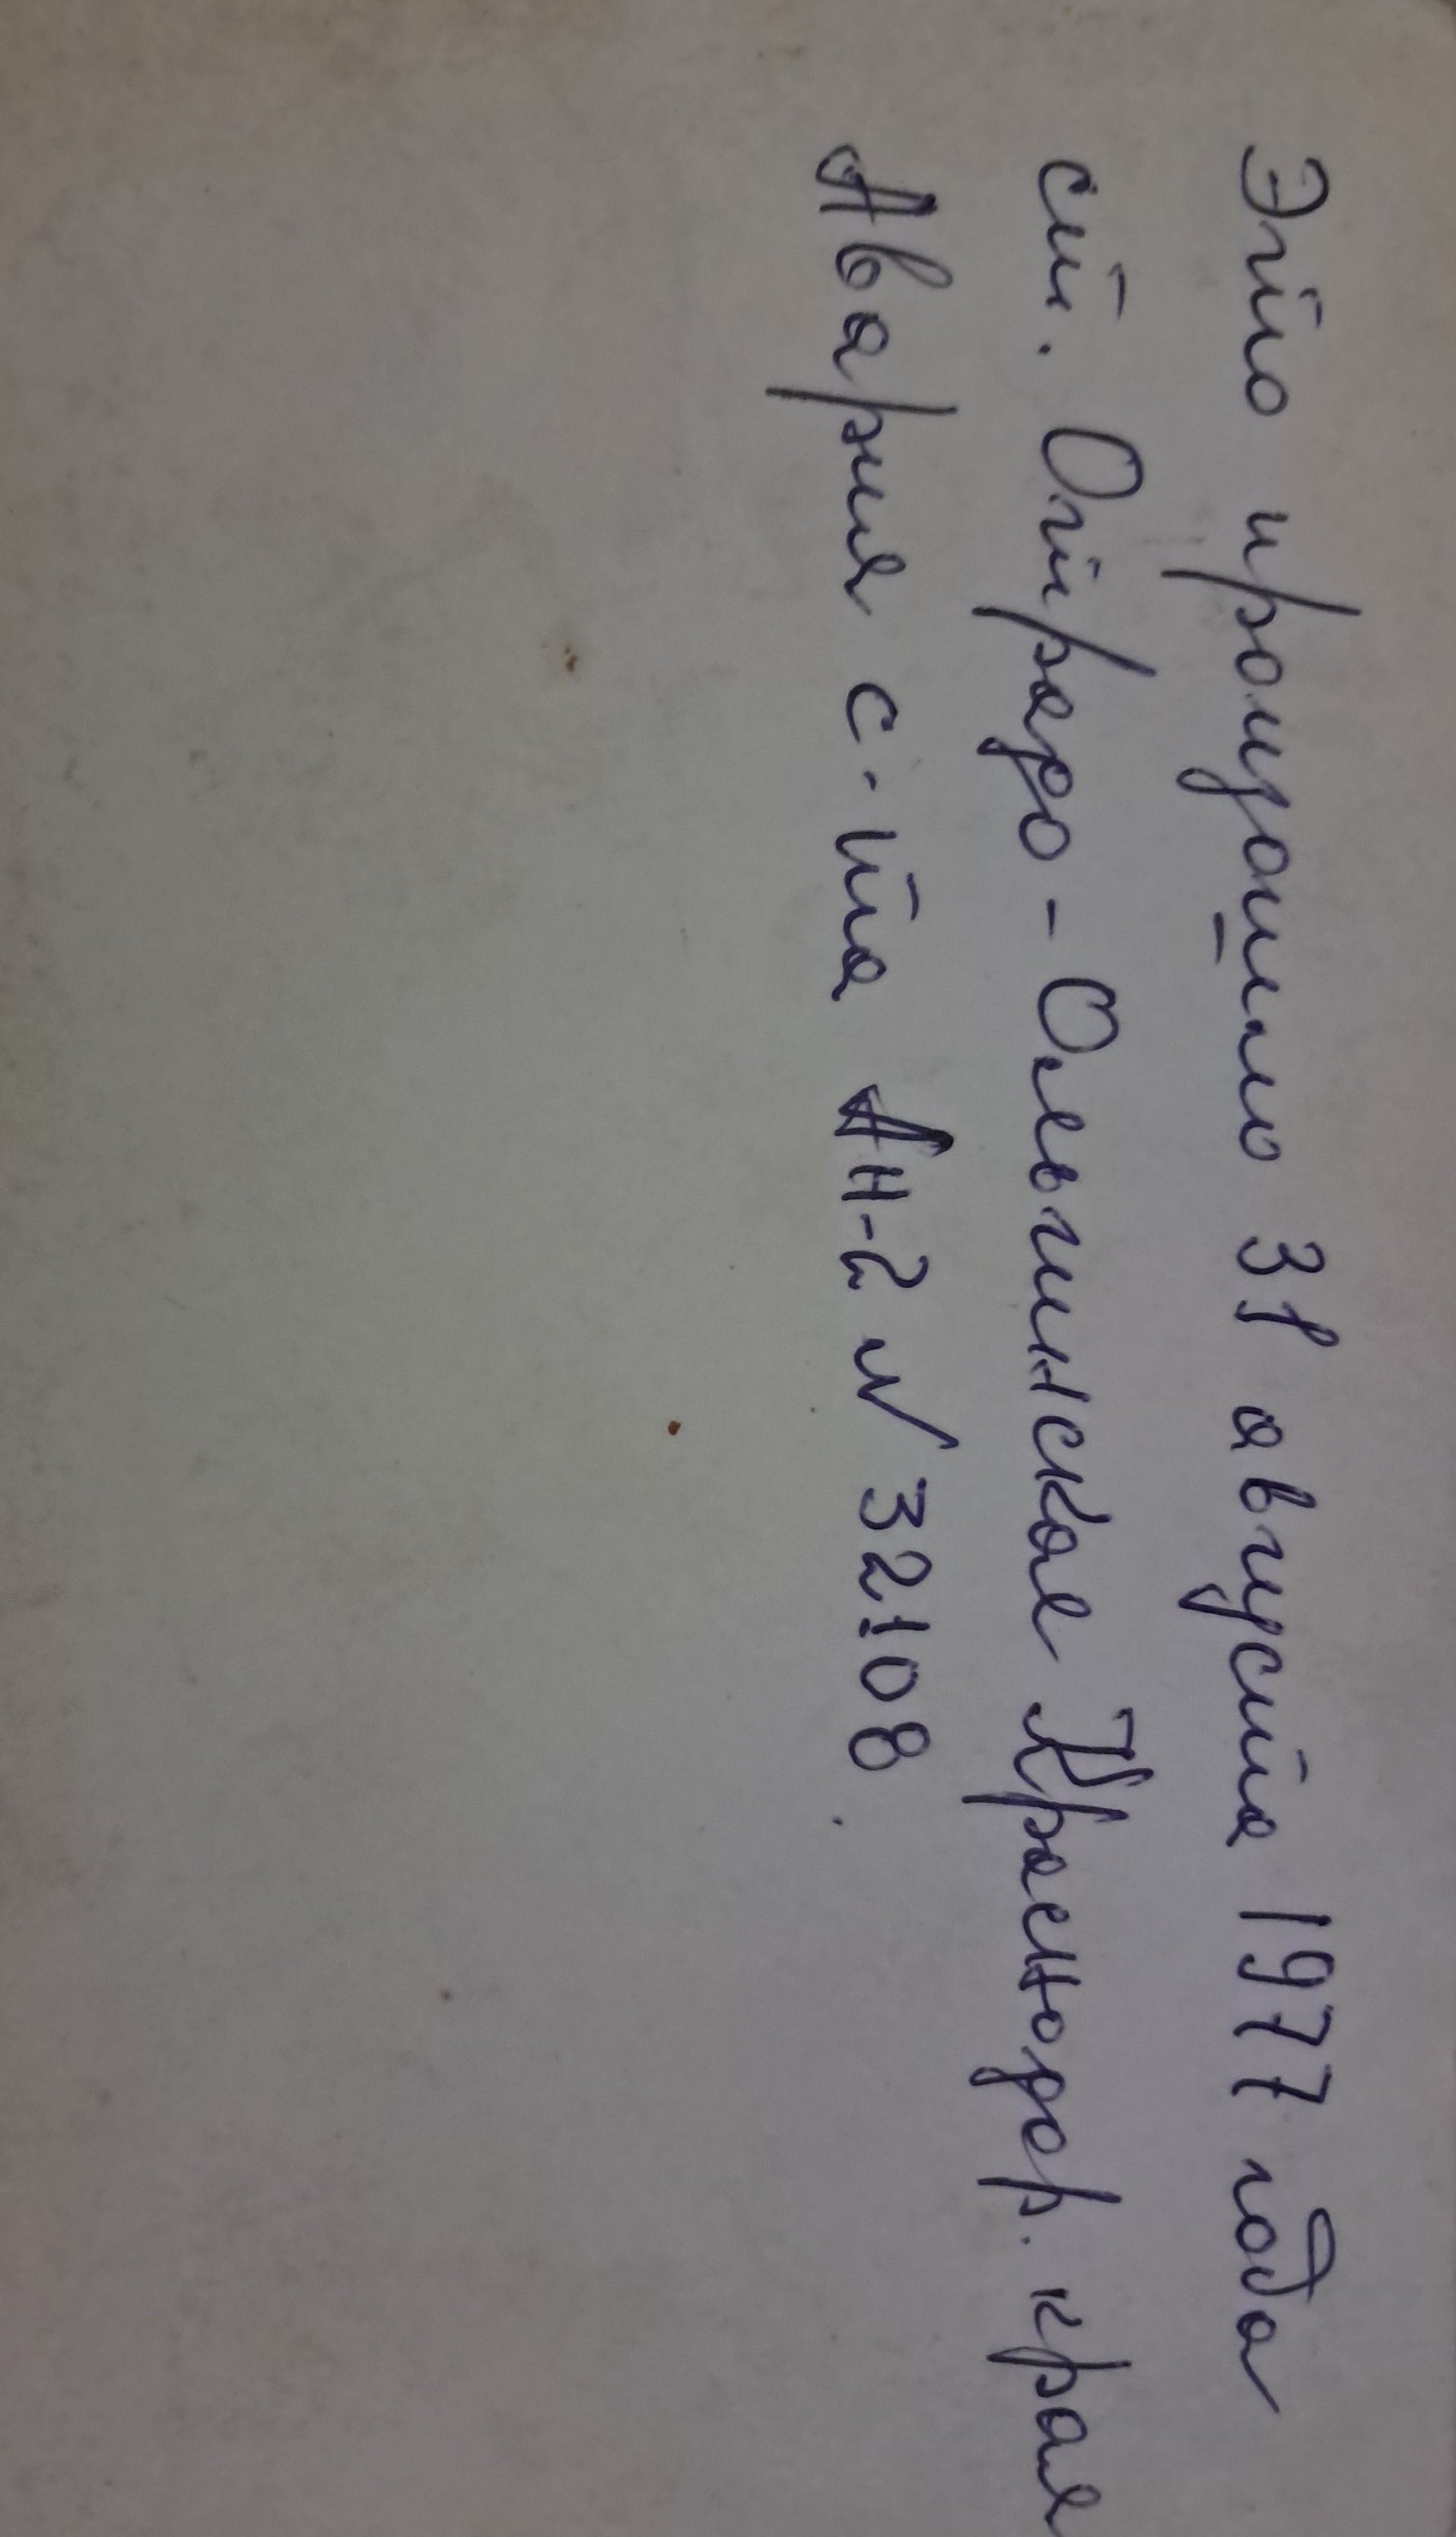 Это произошло 31 августа 1977 года
ст. Отрадо-Ольгинская Краснодар. края
Авария с-та Ан-2 N 32108.